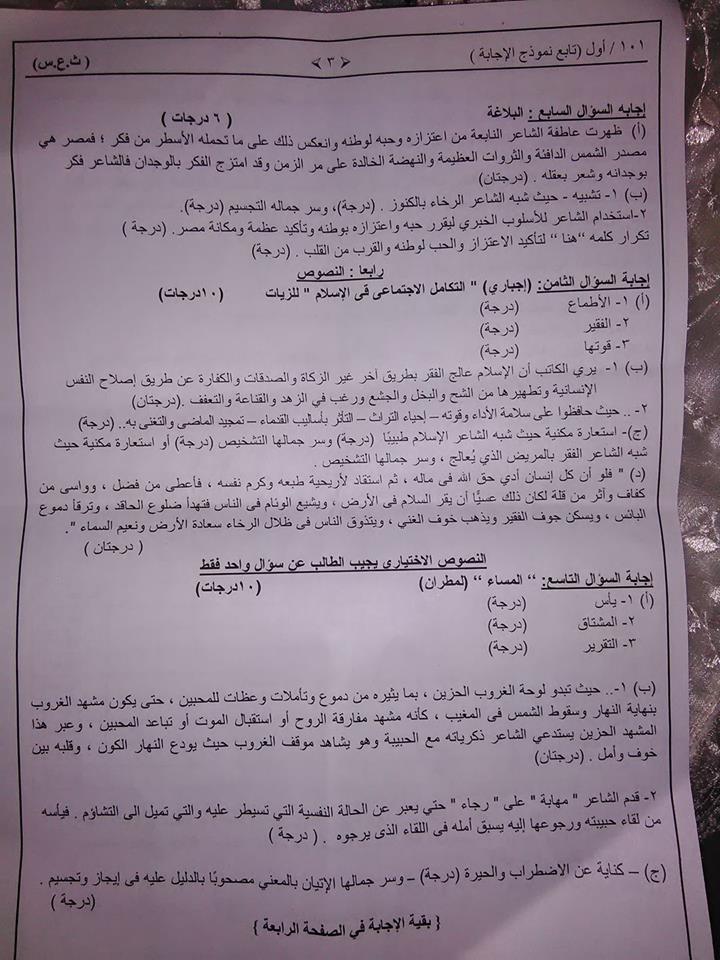 ١٠١ / أول (تابع نموذج الإجابة ) ﴿ ٣ ﴾ ( ث.ع.س)
إجابه السؤال السابع : البلاغة ( ٦ درجات )
(أ) ظهرت عاطفة الشاعر النابعة من اعتزازه وحبه لوطنه وانعكس ذلك على ما تحمله الأسطر من فكر ؛ فمصر هي
مصدر الشمس الدافئة والثروات العظيمة والنهضة الخالدة على مر الزمن وقد امتزج الفكر بالوجدان فالشاعر فكر
بوجدانه وشعر بعقله . (درجتان)
(ب) ١- تشبيه - حيث شبه الشاعر الرخاء بالكنوز . (درجة)، وسر جماله التجسيم (درجة).
٢-استخدام الشاعر للأسلوب الخبري ليقرر حبه واعتزازه بوطنه وتأكيد عظمة ومكانة مصر. (درجة )
تكرار كلمه "هنا " لتأكيد الاعتزاز والحب لوطنه والقرب من القلب . (درجة)
رابعا : النصوص
إجابة السؤال الثامن: (إجباري) " التكامل الاجتماعى فى الإسلام " للزيات (١٠درجات)
(أ) ١- الأطماع (درجة)
٢- الفقير (درجة)
٣- قوتها (درجة)
(ب) ١- يري الكاتب أن الإسلام عالج الفقر بطريق آخر غير الزكاة والصدقات والكفارة عن طريق إصلاح النفس
الإنسانية وتطهيرها من الشح والبخل والجشع ورغب في الزهد والقناعة والتعفف .(درجتان)
٢- .. حيث حافظوا على سلامة الأداء وقوته – إحياء التراث – التأثر بأساليب القدماء – تمجيد الماضى والتغنى به.. (درجة)
(ج)- استعارة مكنية حيث شبه الشاعر الإسلام طبيبًا (درجة) وسر جمالها التشخيص (درجة) أو استعارة مكنية حيث
شبه الشاعر الفقر بالمريض الذي يُعالج ، وسر جمالها التشخيص .
(د) " فلو أن كل إنسان أدي حق الله فى ماله ، ثم استقاد لأريحية طبعه وكرم نفسه ، فأعطى من فضل ، وواسى من
كفاف وآثر من قلة لكان ذلك عسيًّا أن يقر السلام فى الأرض ، ويشيع الوئام فى الناس فتهدأ ضلوع الحاقد ، وترقأ دموع
البائس ، ويسكن جوف الفقير ويذهب خوف الغني ، ويتذوق الناس فى ظلال الرخاء سعادة الأرض ونعيم السماء ".
( درجتان )
النصوص الاختياري يجيب الطالب عن سؤال واحد فقط
إجابة السؤال التاسع: " المساء " (لمطران) (١٠درجات)
(أ) ١- يأس (درجة)
٢- المشتاق (درجة)
٣- التقرير (درجة)
(ب) ١-.. حيث تبدو لوحة الغروب الحزين ، بما يثيره من دموع وتأملات وعظات للمحبين ، حتى يكون مشهد الغروب
بنهاية النهار وسقوط الشمس فى المغيب ، كأنه مشهد مفارقة الروح أو استقبال الموت أو تباعد المحبين ، وعبر هذا
المشهد الحزين يستدعي الشاعر ذكرياته مع الحبيبة وهو يشاهد موقف الغروب حيث يودع النهار الكون ، وقلبه بين
خوف وأمل . (درجتان)
٢- قدم الشاعر " مهابة " على " رجاء " حتي يعبر عن الحالة النفسية التي تسيطر عليه والتي تميل الى التشاؤم . فيأسه
من لقاء حبيبته ورجوعها إليه يسبق أمله فى اللقاء الذى يرجوه . ( درجة )
(ج) – كناية عن الاضطراب والحيرة (درجة) – وسر جمالها الإتيان بالمعني مصحوبًا بالدليل عليه فى إيجاز وتجسيم .
(درجة )
{ بقية الإجابة في الصفحة الرابعة }